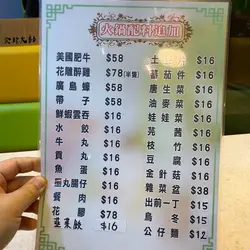 火鍋配料追加
美國肥牛 $58
花雕醉雞 $78(半隻)
廣島蠔 $58
帶子 $58
鮮蝦雲吞 $16
水餃 $16
牛丸 $16
貢丸 $16
魚蛋 $16
丸腸仔 $16
餐肉 $16
花膠 $78
韮菜餃 $16
$16
件 $16
生菜 $16
唐菜 $16
娃娃菜 $16
芫茜 $16
枝竹 $16
豆腐 $16
金針菇 $16
雜菜盆 $38
出前一丁 $15
烏冬 $15
公仔麵 $12